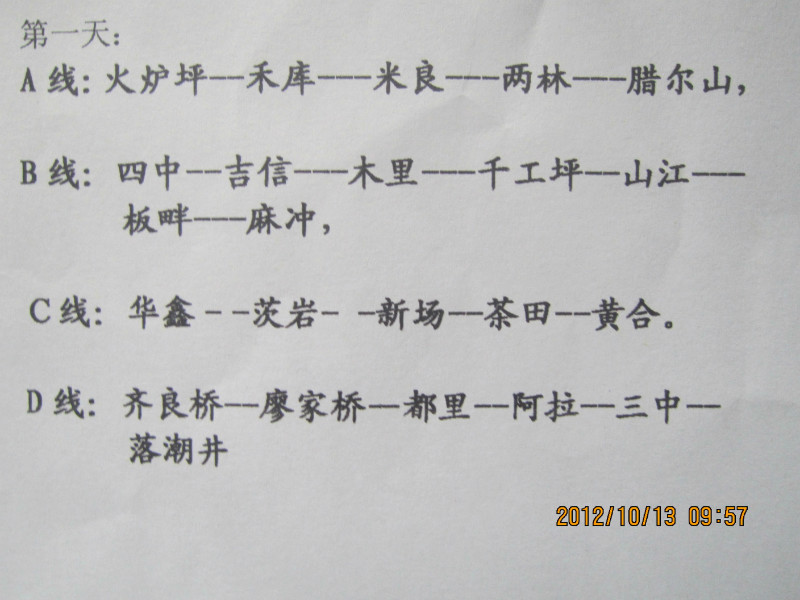 第一天：
A 线：火炉坪--禾库---米良---两林---腊尔山，
B 线：四中--吉信---木里---千工坪--山江---
板畔---麻冲，
C 线：华鑫 - -茨岩- -新场--茶田--黄合。
D 线：齐良桥--廖家桥—都里--阿拉--三中--
落潮井
2012/10/13 09:57